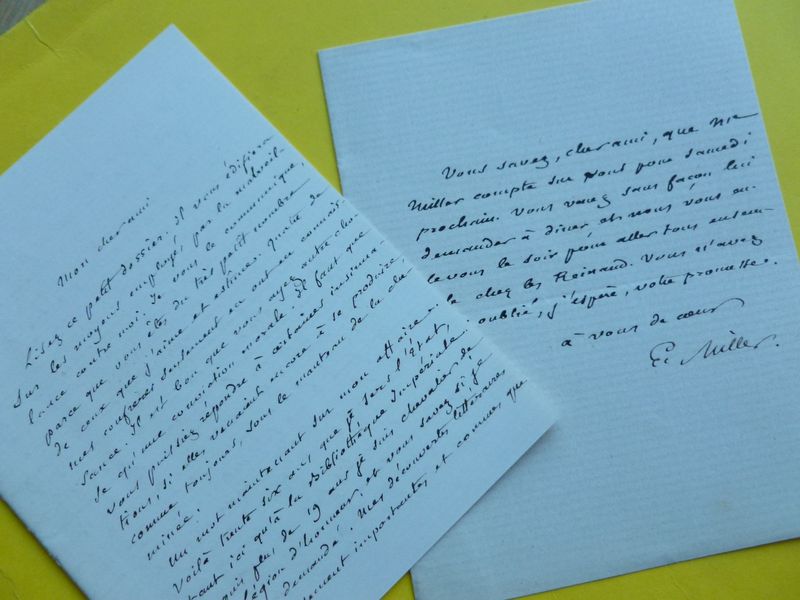 Mon cher ami
Lisez ce petit dossier. Il vous édifiera
sur les moyens employés par la malveil-
lance contre moi. Je vous le communique,
parce que vous êtes du très petit nombre
de ceux que j'aime et estime. Quatre de
mes confrères seulement en ont eu connais-
sance. Il est bon que vous ayez autre cho-
se qu'une conviction morale. Il faut que
vous puissiez répondre à certaines insinua-
tions, si elles venaient encore à se produire,
comme toujours, sous le manteau de la che-
minée.
Un mot maintenant sur mon affaire.
Voilà trente six ans que je sers l'État,
tant ici qu'à la Bibliothèque Impériale.
plus de 19 ans je suis chevalier de
Légion d'honneur, et vous savez si je
demandé. Mes découvertes littéraires
importantes, et comme, que
Vous savez, cher ami, que Me
Miller compte sur vous pour samedi
prochain. Vous venez sans façon lui
demander à dîner et nous vous en-
levons le soir pour aller tous ensem-
chez les Reinaud. Vous n'avez
oublié, j'espère, votre promesse.
à vous de cœur
E. Miller.